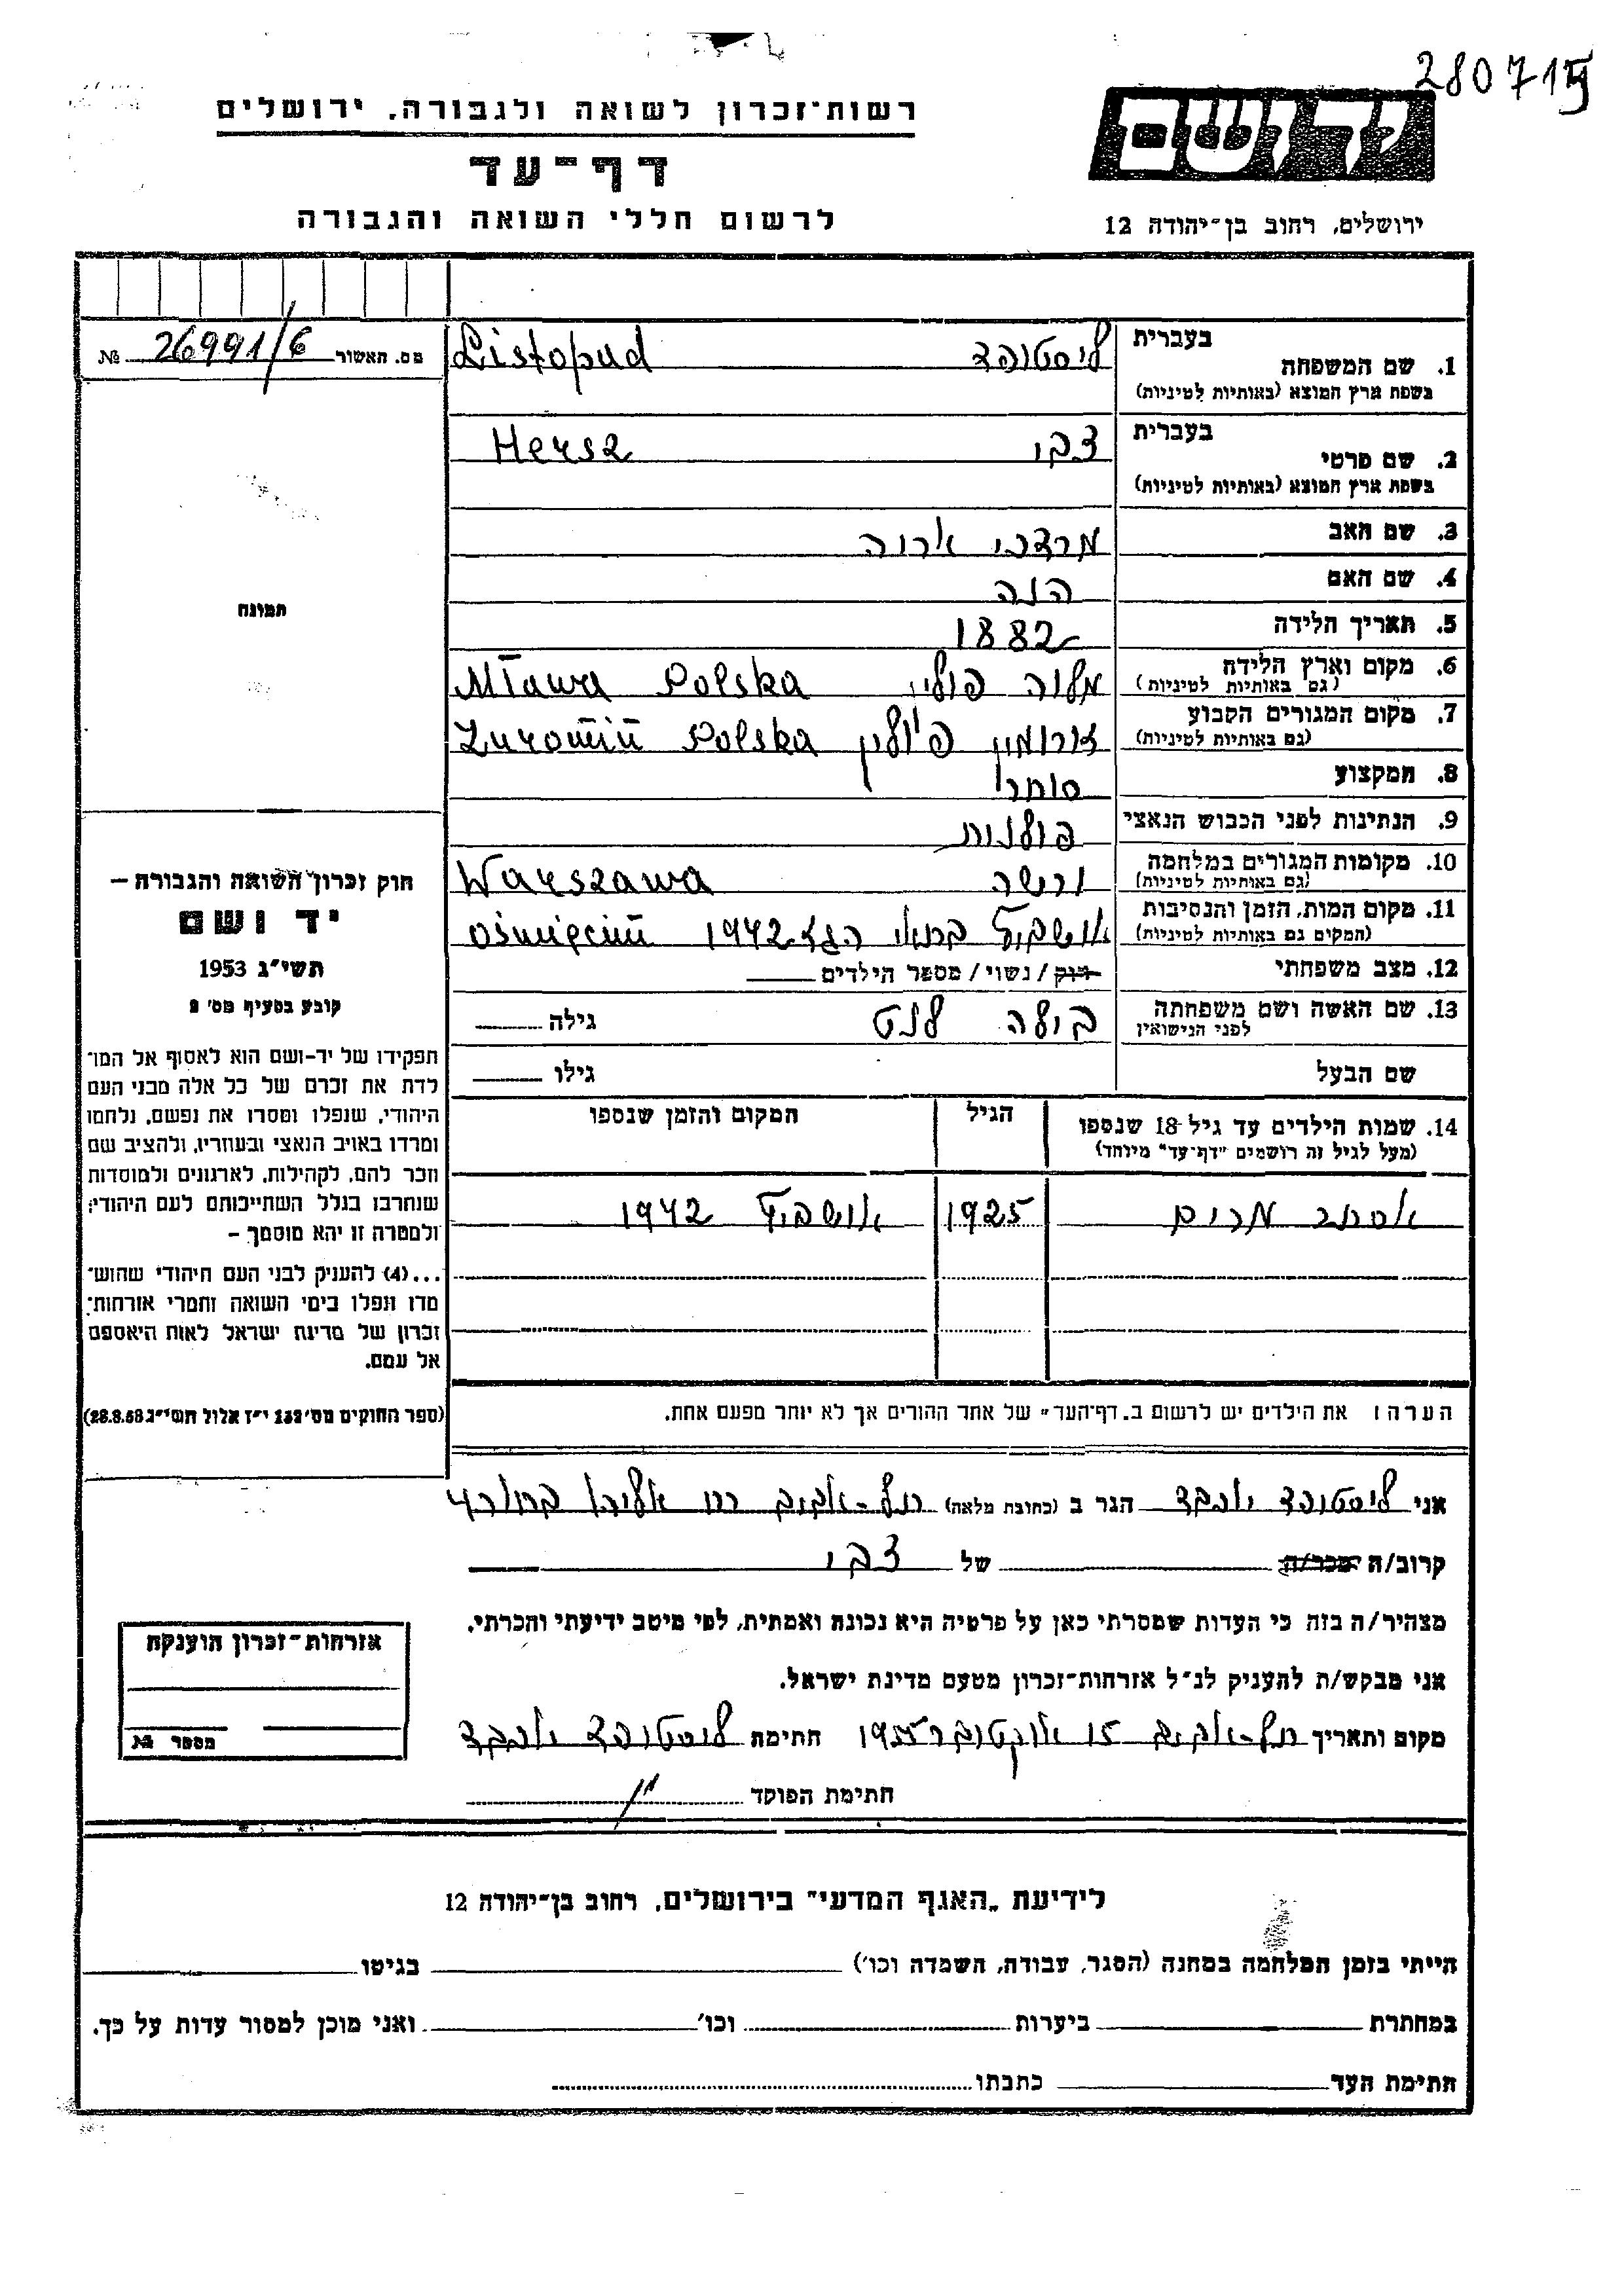 280715
רשות־זכרון לשואה ולגבורה, ירושלים
דף־עד
לרשום חללי השואה והגבורה
יד ושם
ירושלים, רחוב בן־יהודה 12
מס. תאשור 26991/6 №
תמונה
חוק זכרון השואה והגבורה –
יד ושם
תשי״ג 1953
קובע בסעיף מס׳ 2
תפקידו של יד-ושם הוא לאסוף אל המו־
לדת את זכרם של כל אלה מבני העם
היהודי, שנפלו ומסרו את נפשם, נלחמו
ומרדו באויב הנאצי ובעוזריו, ולהציב שם
וזכר להם, לקהילות, לארגונים ולמוסדות
שנחרבו בגלל השתייכותם לעם היהודי;
ולמטרה זו יהא מוסמך –
...(4) להעניק לבני העם היהודי שהוש־
מדו ונפלו בימי השואה והמרי אזרחות־
זכרון של מדינת ישראל לאות היאספם
אל עמם.
(ספר החוקים מס׳ 132 י״ז אלול תשי״ג 28.8.53)
1. שם המשפחה בעברית ליסטופד Listopad
בשפת ארץ המוצא (באותיות לטיניות)
2. שם פרטי בעברית צבי Hersz
בשפת ארץ המוצא (באותיות לטיניות)
3. שם האב מרדכי אריה
4. שם האם חנה
5. תאריך הלידה 1882
6. מקום וארץ הלידה מלוה פולין Mława Polska
(גם באותיות לטיניות)
7. מקום המגורים הקבוע זורומין פולין Żuromiń Polska
(גם באותיות לטיניות)
8. המקצוע סוחר
9. הנתינות לפני הכבוש הנאצי פולנית
10. מקומות המגורים במלחמה ורשה Warszawa
(גם באותיות לטיניות)
11. מקום המות, הזמן והנסיבות אושביץ 1942 Oświęcim
(המקום גם באותיות לטיניות)
12. מצב משפחתי רוק / נשוי / מספר הילדים
13. שם האשה ושם משפחתה בילה גילה
לפני הנישואין
שם הבעל גילו
14. שמות הילדים עד גיל 18 שנספו הגיל המקום והזמן שנספו
(מעל לגיל זה רושמים "דף־עד" מיוחד)
אסתר מרים 1925 אושביץ 1942
הערה: את הילדים יש לרשום ב„דף־העד״ של אחד ההורים אך לא יותר מפעם אחת.
אני ליסטופד יוכבד הגר ב (כתובת מלאה) תל-אביב
קרוב/ה מכר/ה של צבי
מצהיר/ה בזה כי העדות שמסרתי כאן על פרטיה היא נכונה ואמתית, לפי מיטב ידיעתי והכרתי.
אני מבקש/ת להעניק לנ״ל אזרחות־זכרון מטעם מדינת ישראל.
מקום ותאריך תל-אביב 15 אוקטובר 1955 חתימת ליסטופד יוכבד
חתימת הפוקד
אזרחות־זכרון הוענקה
מספר №
לידיעת „האגף המדעי״ בירושלים, רחוב בן־יהודה 12
הייתי בזמן המלחמה במחנה (הסגר, עבודה, השמדה וכו׳) בגיטו
במחתרת ביערות וכו׳ ואני מוכן למסור עדות על כך.
חתימת העד כתבתו